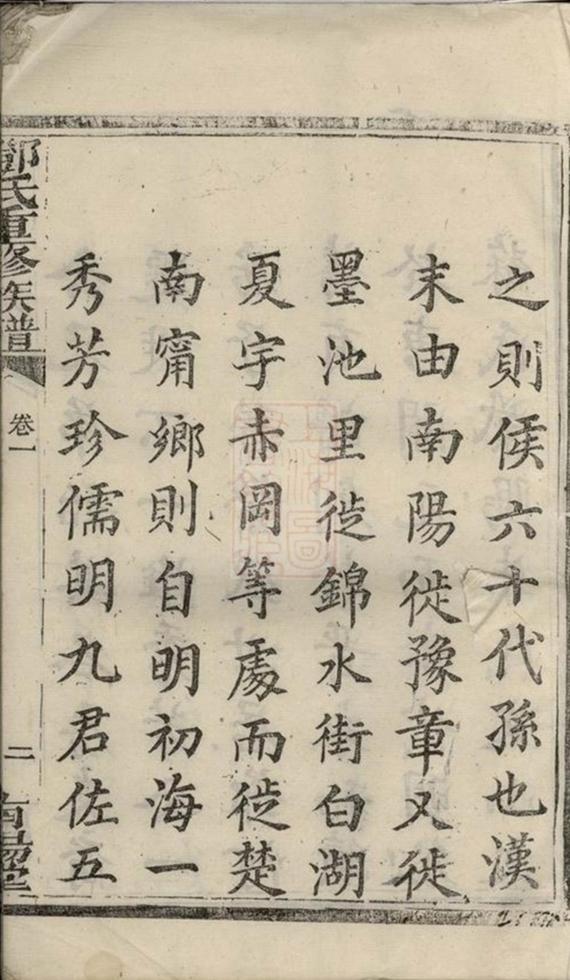 之則侯六十代孫也漢
末由南陽徙豫章又徙
墨池里徙錦水街白湖
夏宇赤岡等處而徙楚
南甯鄉則自明初海一
秀芳珍儒明九君佐五
鄧氏重修族譜
卷一
二
南陽堂